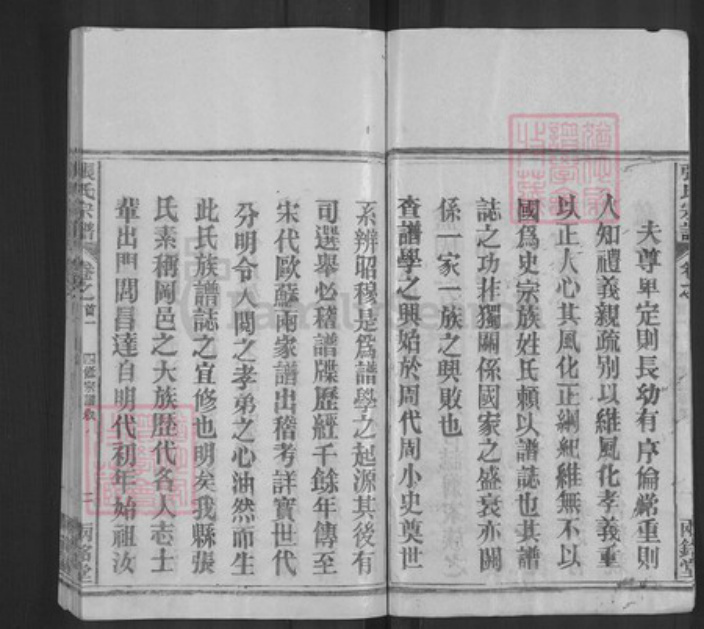 夫尊卑定則長幼有序倫常重則
人知禮義親疏別以維風化孝義重
以正人心其風化正綱紀維無不以
國爲史宗族姓氏賴以譜誌也其譜
誌之功非獨關係國家之盛衰亦關
係一家一族之興敗也
查譜學之興始於周代周小史奠世
系辨昭穆是爲譜學之起源其後有
司選舉必稽譜牒歷經千餘年傳至
宋代歐蘇兩家譜出稽考詳實世代
分明令人閱之孝弟之心油然而生
此氏族譜誌之宜修也明矣我縣張
氏素稱岡邑之大族歷代名人志士
輩出門閭昌達自明代初年始祖汝
張氏宗譜 卷之首一 四修宗譜敘 二 兩銘堂